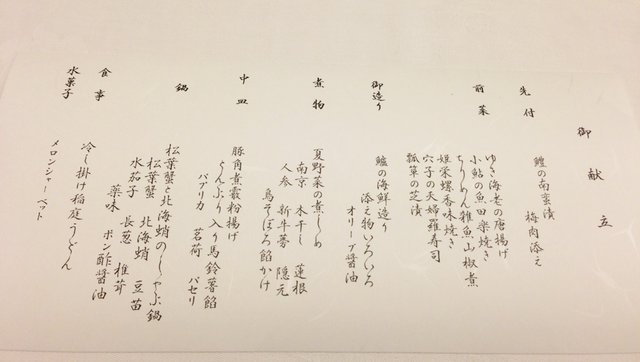 御献立
先付
鱧の南蛮漬
梅肉添え
前菜
ゆき海老の唐揚げ
小鮎の魚田楽焼き
ちりめん雑魚山椒煮
姫栄螺香味焼き
穴子の天婦羅寿司
瓢草の芝漬
御造り
鱸の海鮮造り
添え物いろいろ
オリーブ醤油
煮物
夏野菜の煮しめ
南京 木干し 蓮根
人参 新牛蒡 隠元
鳥そぼろ餡かけ
中皿
豚角煮霰粉揚げ
とんぶり入り馬鈴薯餡
パプリカ 茗荷 パセリ
鍋
松葉蟹と北海蛸のしゃぶ鍋
松葉蟹 北海蛸 豆苗
水茄子 長葱 椎茸
薬味 ポン酢醤油
食事
冷し掛け稲庭うどん
水菓子
メロンシャーベット